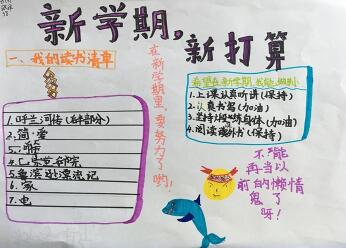 新学期,
新打算
一、我的读书清单
1.呼兰河传(鲜部分)
2.简·爱
3.
4.
5.鲁滨逊漂流记
6.家
7.电
在新学期里,要努力了哟!
希望在新学期,我能做到
1.上课认真听讲(保持)
2.认真书写(加油)
3.坚持锻炼身体(加油)
4.阅读课外书(保持)
不能
再当以
前的懒惰
鬼了
呀!